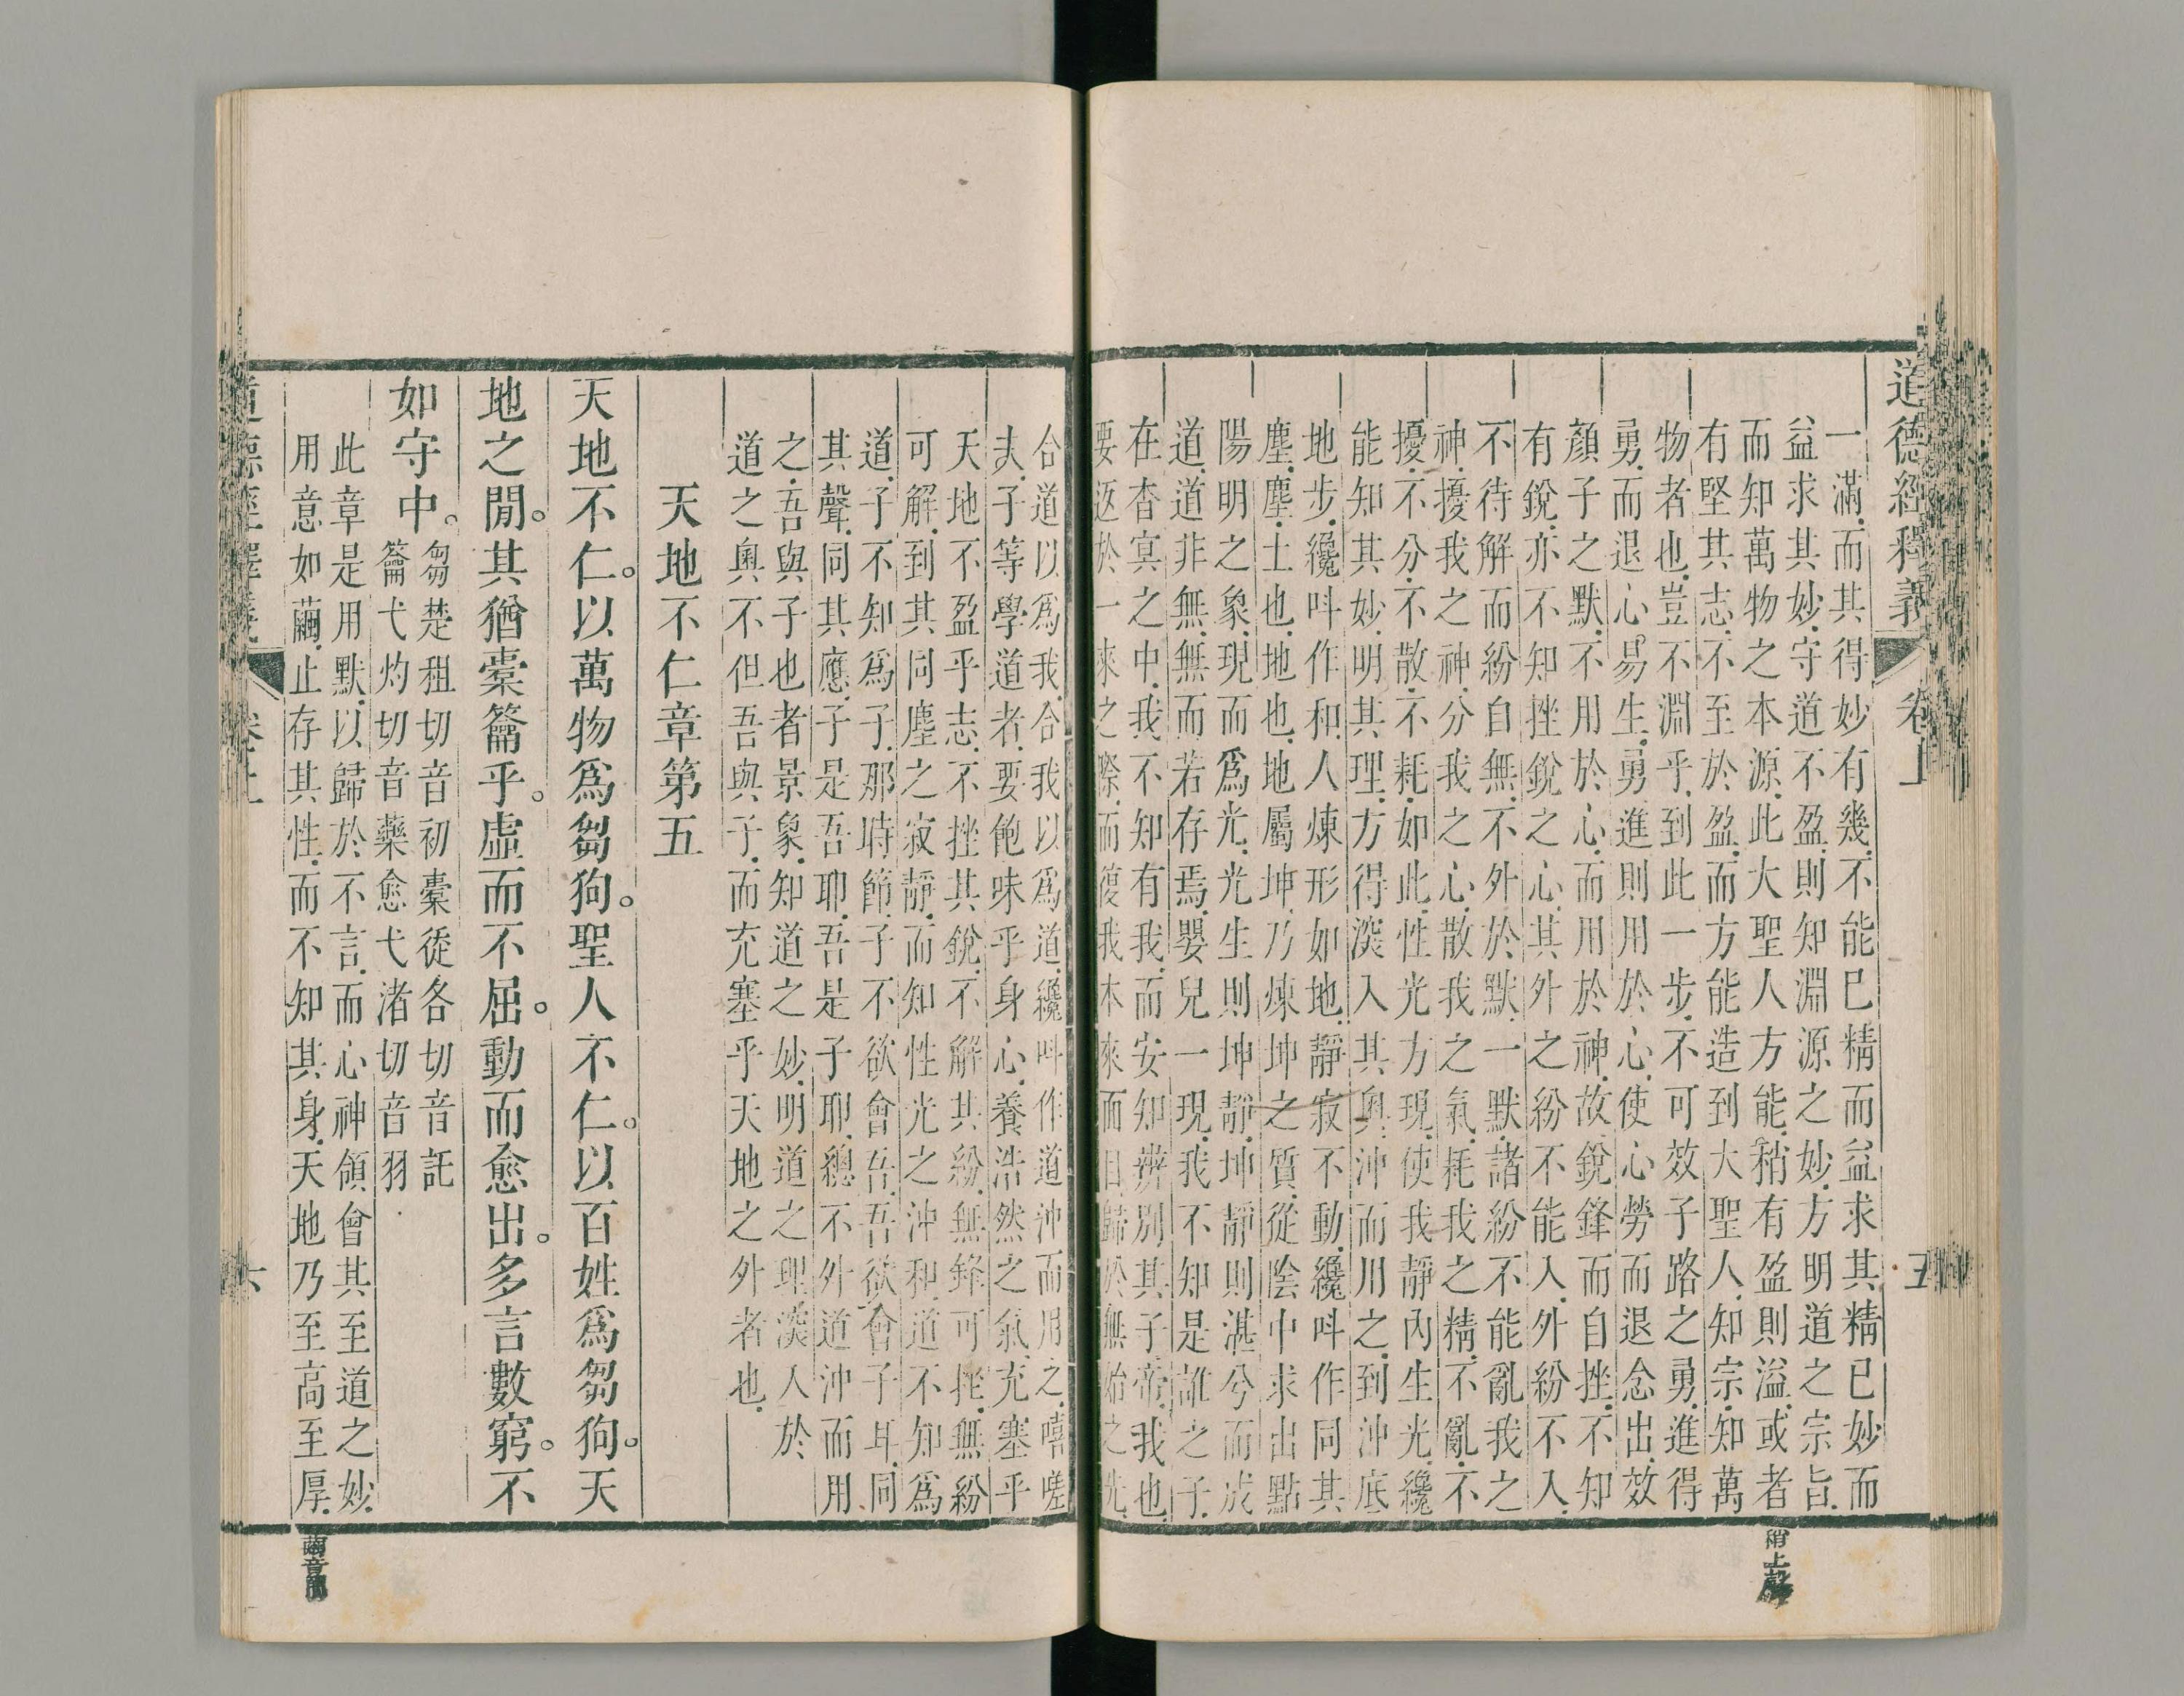 道德經釋義 卷上 五
一滿而其得妙有幾不能已精而益求其精已妙而
益求其妙守道不盈則知淵源之妙方明道之宗旨
而知萬物之本源此大聖人方能稍有盈則溢或者
有堅其志不至於盈而方能造到大聖人知宗知萬
物者也豈不淵乎到此一步不可效子路之勇進得
勇而退心易生勇進則用於心使心勞而退念出效
顏子之默不用於心而用於神故銳鋒而自挫不知
有銳亦不知挫銳之心其外之紛不能入外紛不入
不待解而紛自無不外於默一默諸紛不能亂我之
神擾我之神分我之心散我之氣耗我之精不亂不
擾不分不散不耗如此性光方現使我靜內生光纔
能知其妙明其理方得深入其奧沖而用之到沖底
地步纔呌作和人煉形如地靜寂不動纔呌作同其
塵塵土也地也地屬坤乃煉坤之質從陰中求出點
陽明之象現而爲光光生則坤靜坤靜則湛兮而成
道道非無無而若存焉嬰兒一現我不知是誰之子
在杳冥之中我不知有我而安知辨別其子帝我也
要返於一來之際而復我本來而歸於無始之先
合道以爲我合我以爲道纔呌作道沖而用之嘻嗟
夫子等學道者要飽味乎身心養浩然之氣充塞乎
天地不盈乎志不挫其銳不解其紛無鋒可挫無紛
可解到其同塵之寂靜而知性光之沖和道不知爲
道子不知爲子那時節子不欲會吾吾欲會子耳同
其聲同其應子是吾耶吾是子耶總不外道沖而用
之吾與子也者景象知道之妙明道之理深人於
道之奧不但吾與子而充塞乎天地之外者也
天地不仁章第五
天地不仁以萬物爲芻狗聖人不仁以百姓爲芻狗天
地之閒其猶橐籥乎虛而不屈動而愈出多言數窮不
如守中
芻楚租切音初橐徒各切音託
籥弋灼切音藥愈弋渚切音羽
此章是用默以歸於不言而心神領會其至道之妙
用意如繭止存其性而不知其身天地乃至高至厚
道德經釋義 卷上 六
稍上聲
繭音